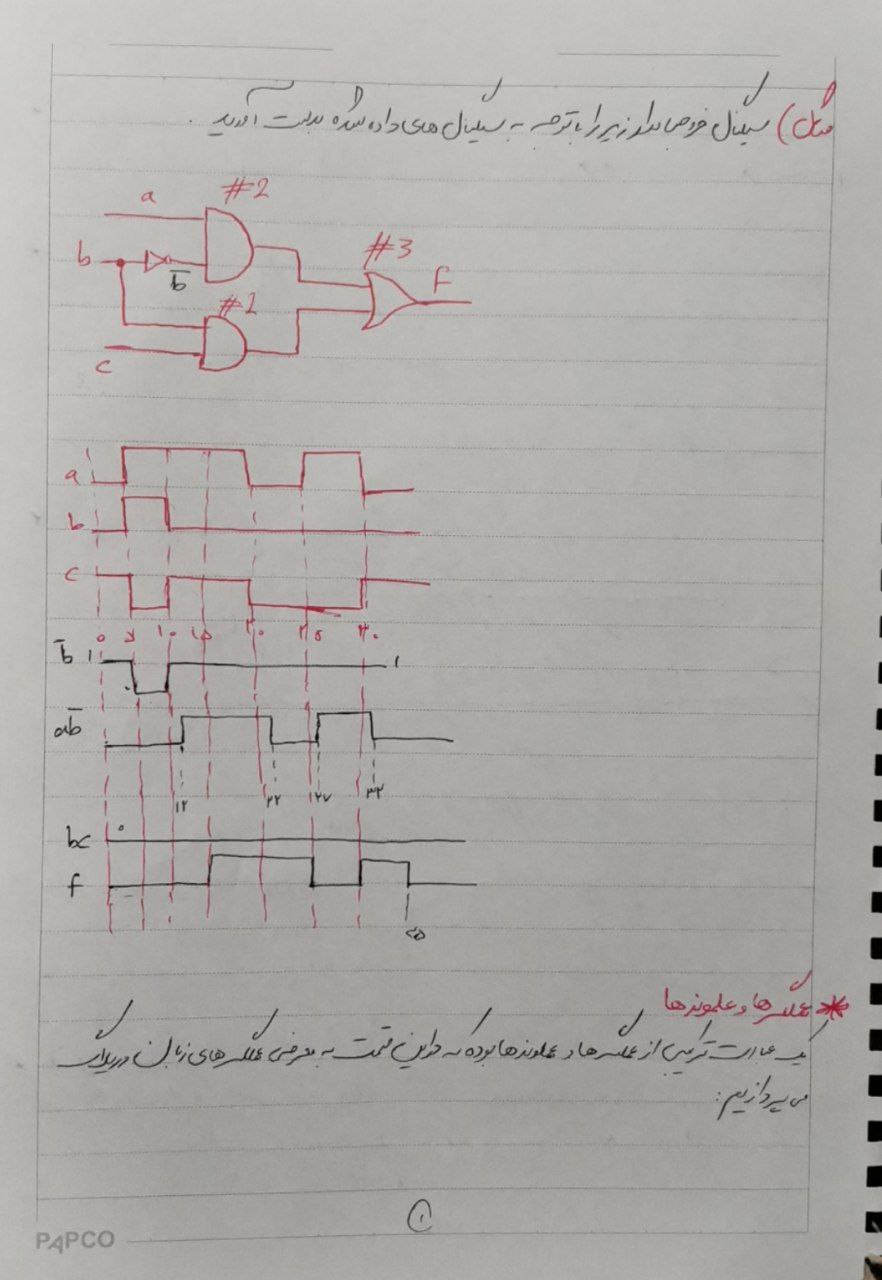 مثال) سیگنال خروجی مدار زیر را با توجه به سیگنال های داده شده بدست آورید.
#2
a
#3
b
b̅
f
#2
c
a
b
c
۰ ۵ ۱۰ ۱۵ ۲۰ ۲۵ ۳۰
b̅ ۱ ۱
ab̅
۱۲ ۲۲ ۲۷ ۳۲
bc ۰
f
۳۵
* عملگرها و عملوندها
یک عبارت ترکیبی از عملگرها و عملوندها بوده که در این قسمت به معرفی عملگرهای زبان وریلاگ
می پردازیم:
۱
PAPCO